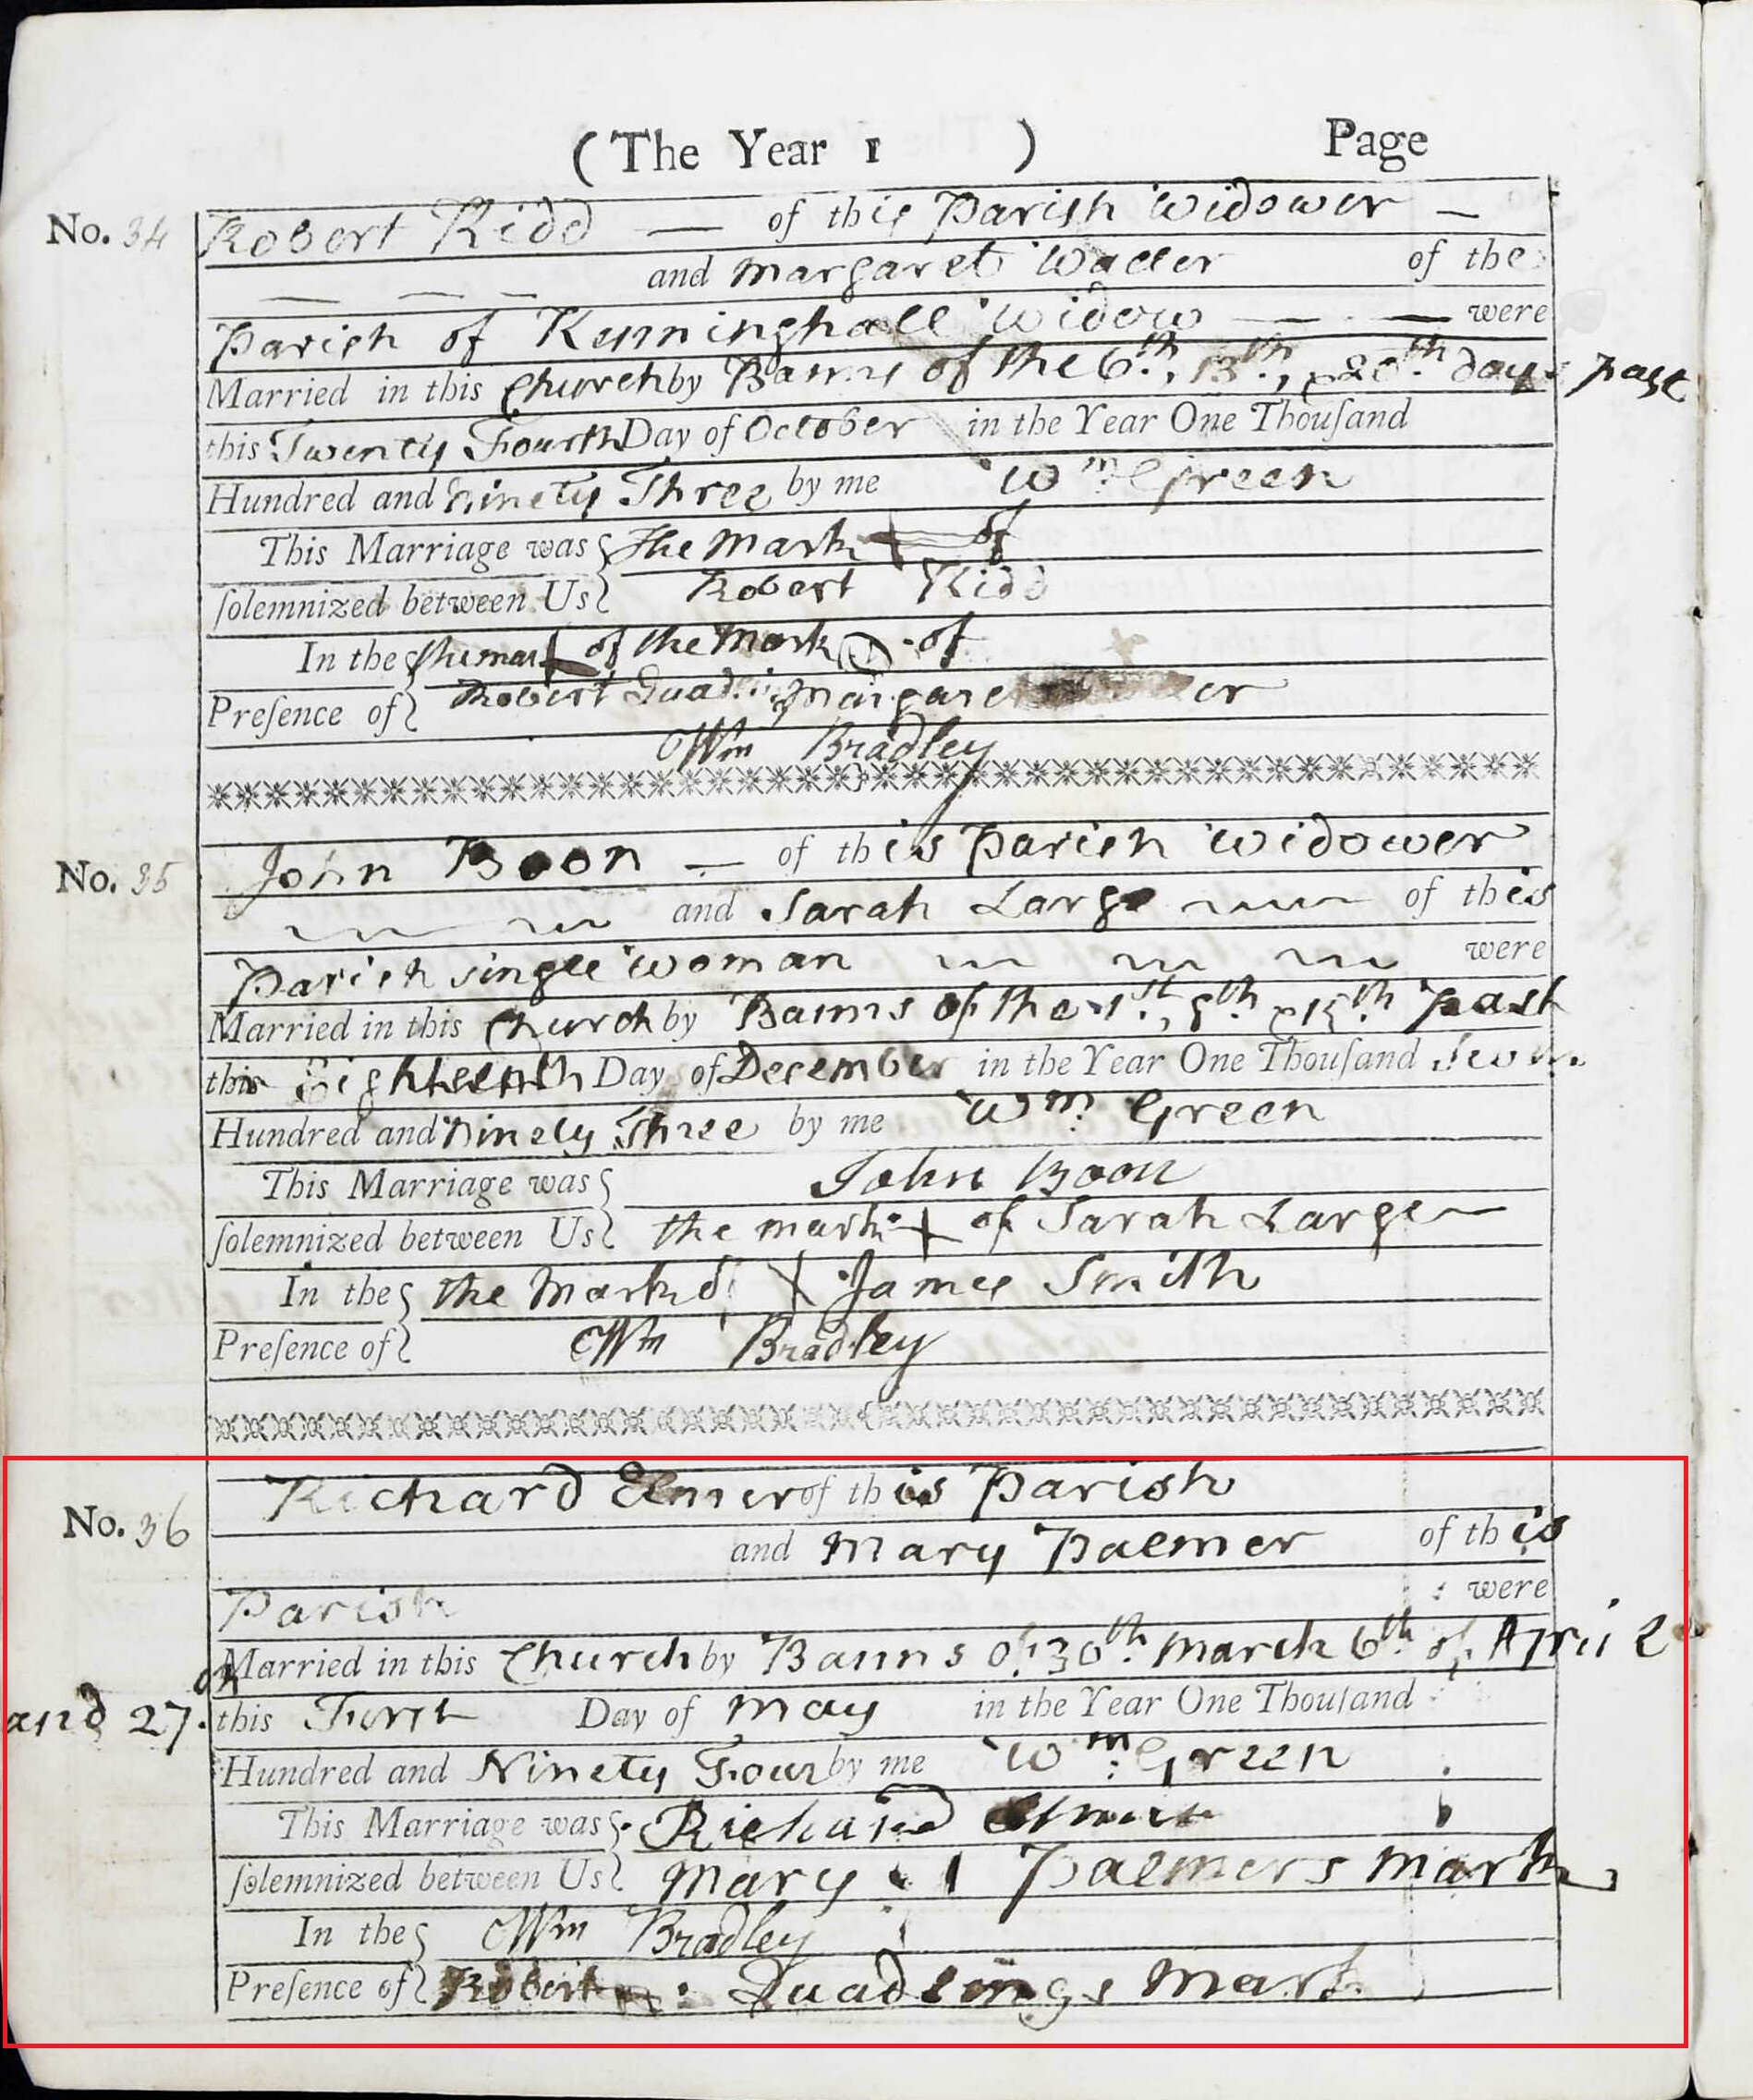 (The Year 1 ) Page
No. 34 Robert Kidd — of this Parish Widower —
— — — and Margaret Waller of the
Parish of Kenninghall Widow — — were
Married in this Church by Banns of the 6th, 13th, & 20th days past
this Twenty Fourth Day of October in the Year One Thouſand
Hundred and Ninety Three by me Wm Green
This Marriage was the Mark + of
ſolemnized between Us Robert Kidd
In the the mark of the Mark of
Preſence of Robert Margaret
Wm Bradley
No. 35 John Boon — of this Parish Widower
and Sarah Large of this
Parish single woman were
Married in this Church by Banns of the 1st, 8th & 15th Past
this Eighteenth Day of December in the Year One Thouſand
Hundred and Ninety Three by me Wm Green
This Marriage was John Boon
ſolemnized between Us the mark + of Sarah Large
In the the Mark of X James Smith
Preſence of Wm Bradley
No. 36 Richard Elmer of this Parish
and Mary Palmer of this
Parish were
Married in this Church by Banns of 30th March 6th of April
and 27. this First Day of May in the Year One Thouſand
Hundred and Ninety Four by me Wm Green
This Marriage was Richard
ſolemnized between Us Mary Palmers Mark
In the Wm Bradley
Preſence of Robert Quadlings Mark